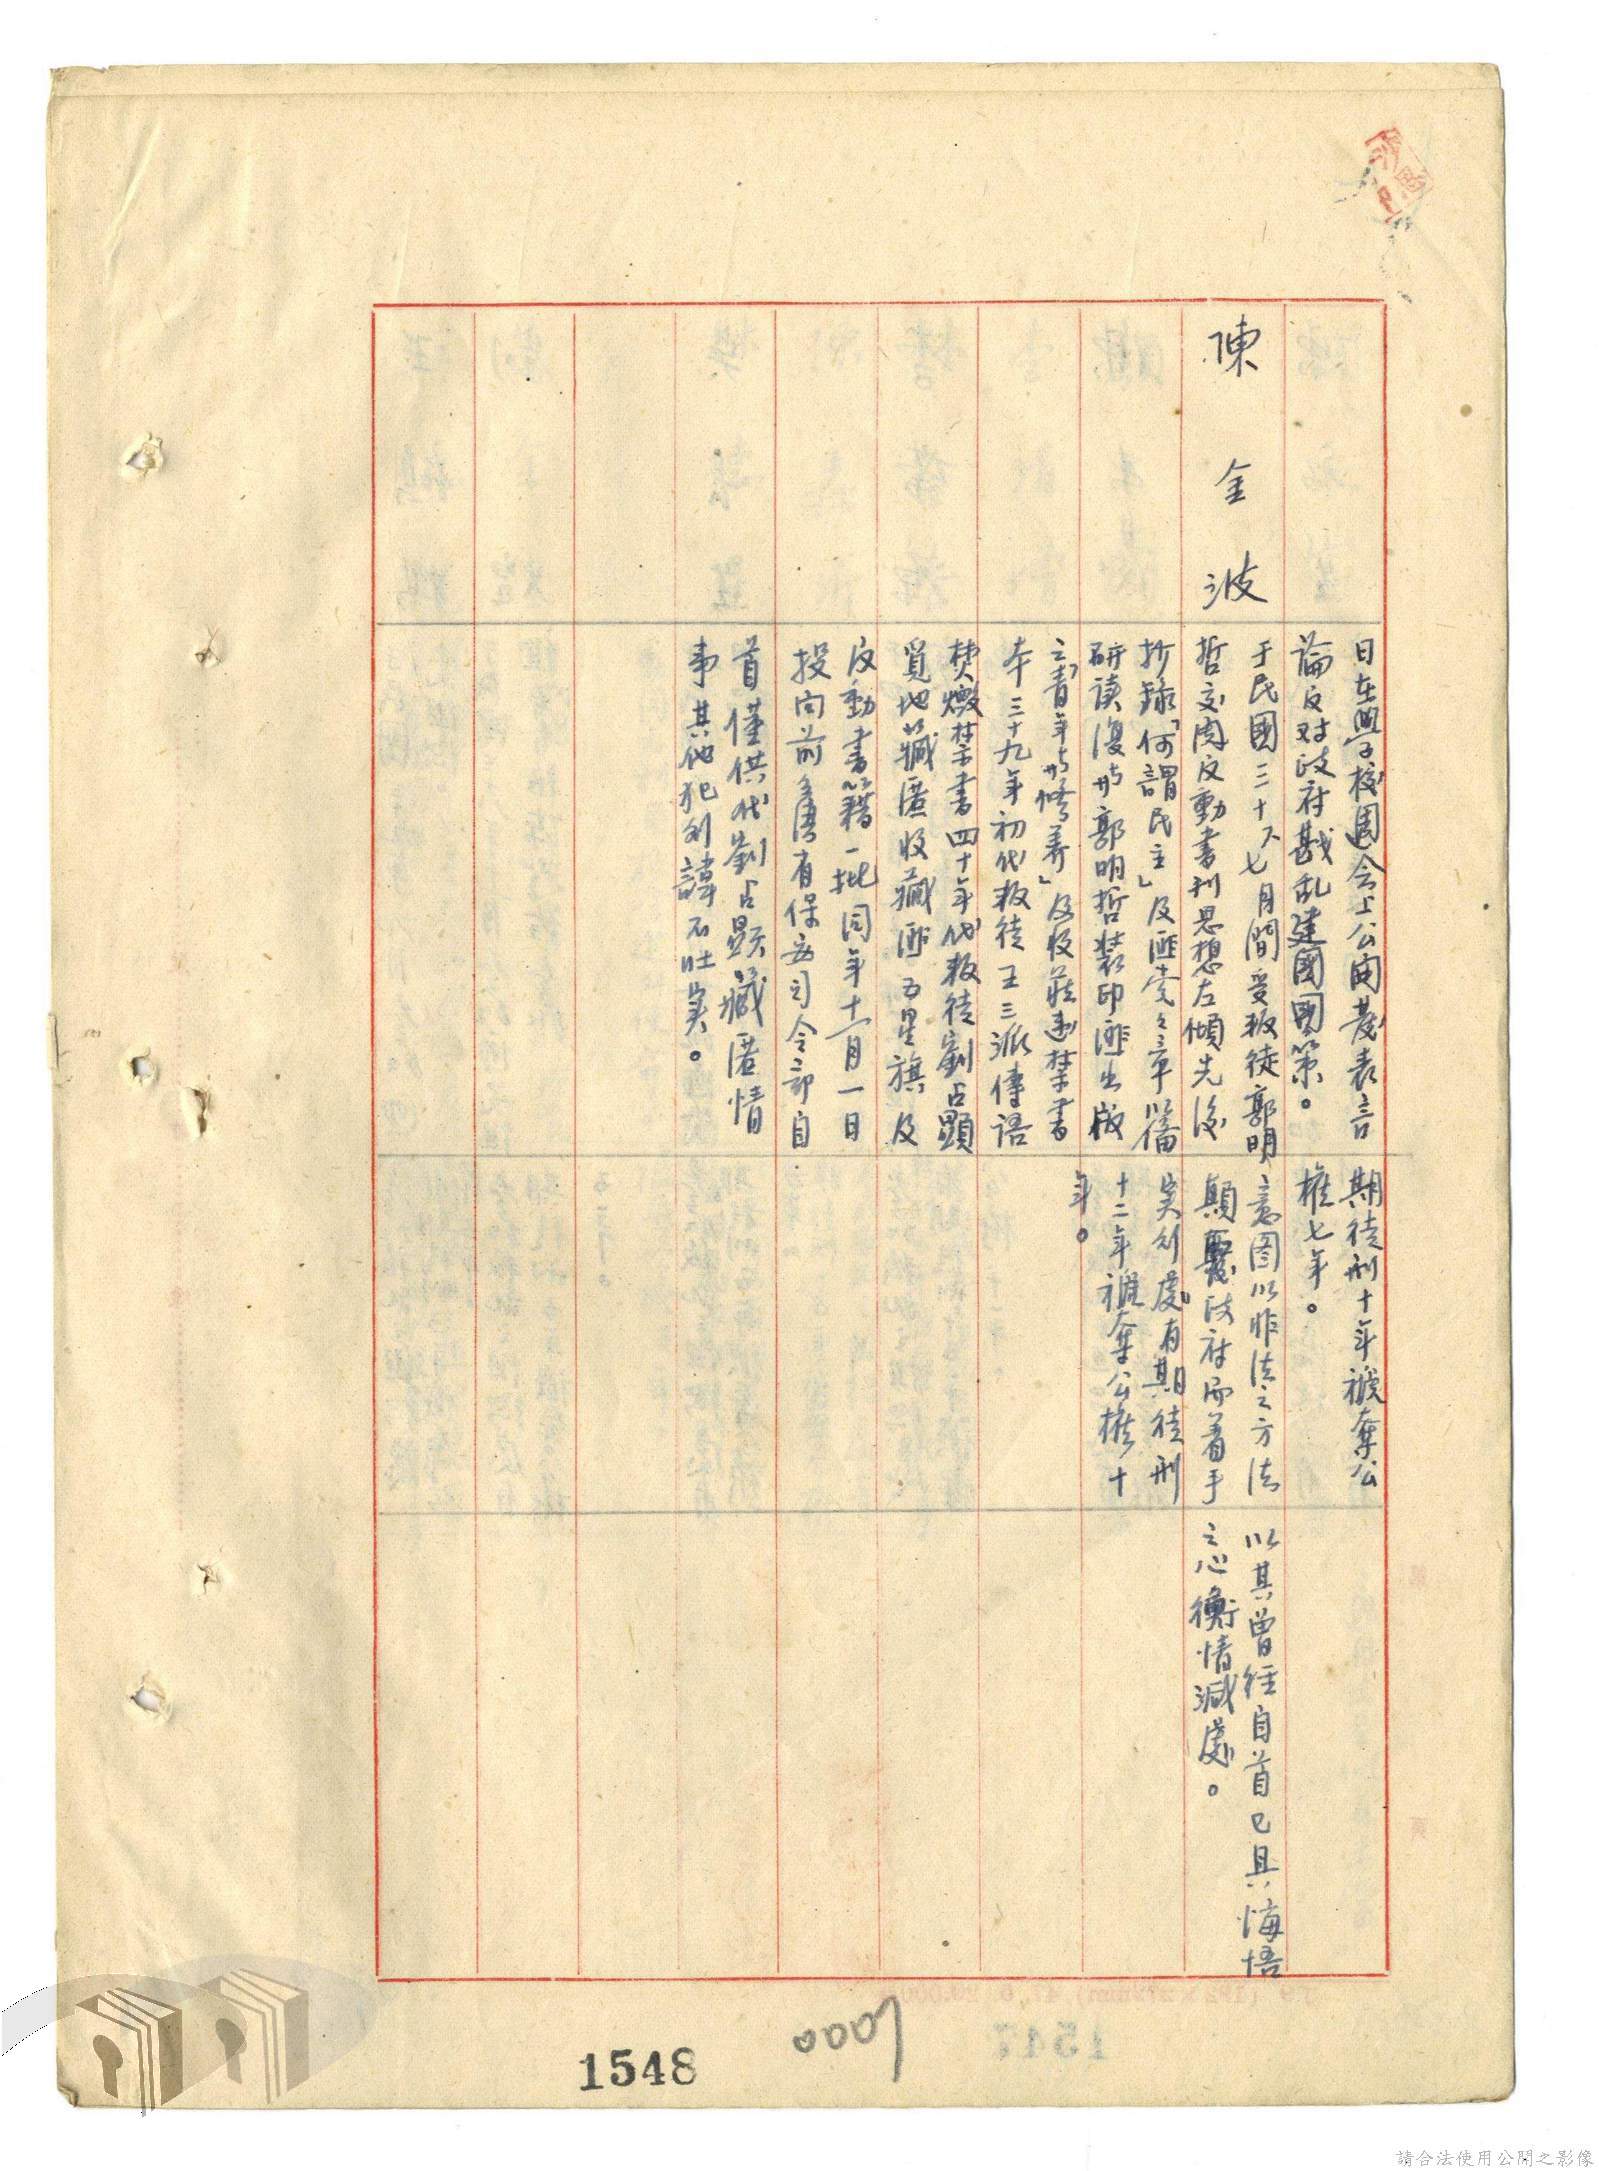 陳金波
日在與學校週会上公開發表言
論反对政府戡乱建國國策。
于民國三十八七月間受叛徒郭明
哲交閱反動書刊思想左傾先後
抄錄「何謂民主」及匪党之章以備
研讀復与郭明哲裝印匪出版
之「青年与修養」及收藏违禁書
本三十九年初代叛徒王三派傳語
焚燬禁書四十年代叛徒劉占顯
覓地藏匿收藏匪五星旗及
反動書籍一批同年十一月一日
投向前台湾省保安司令部自
首僅供代劉占顕藏匿情
事其他犯刑諱不吐実。
期徒刑十年褫奪公
権七年。
意图以非法之方法
顛覆政府而着手
実行處有期徒刑
十二年褫奪公権十
年。
以其曾経自首已具悔悟
之心衡情減處。
1548
1547
請合法使用公開之影像